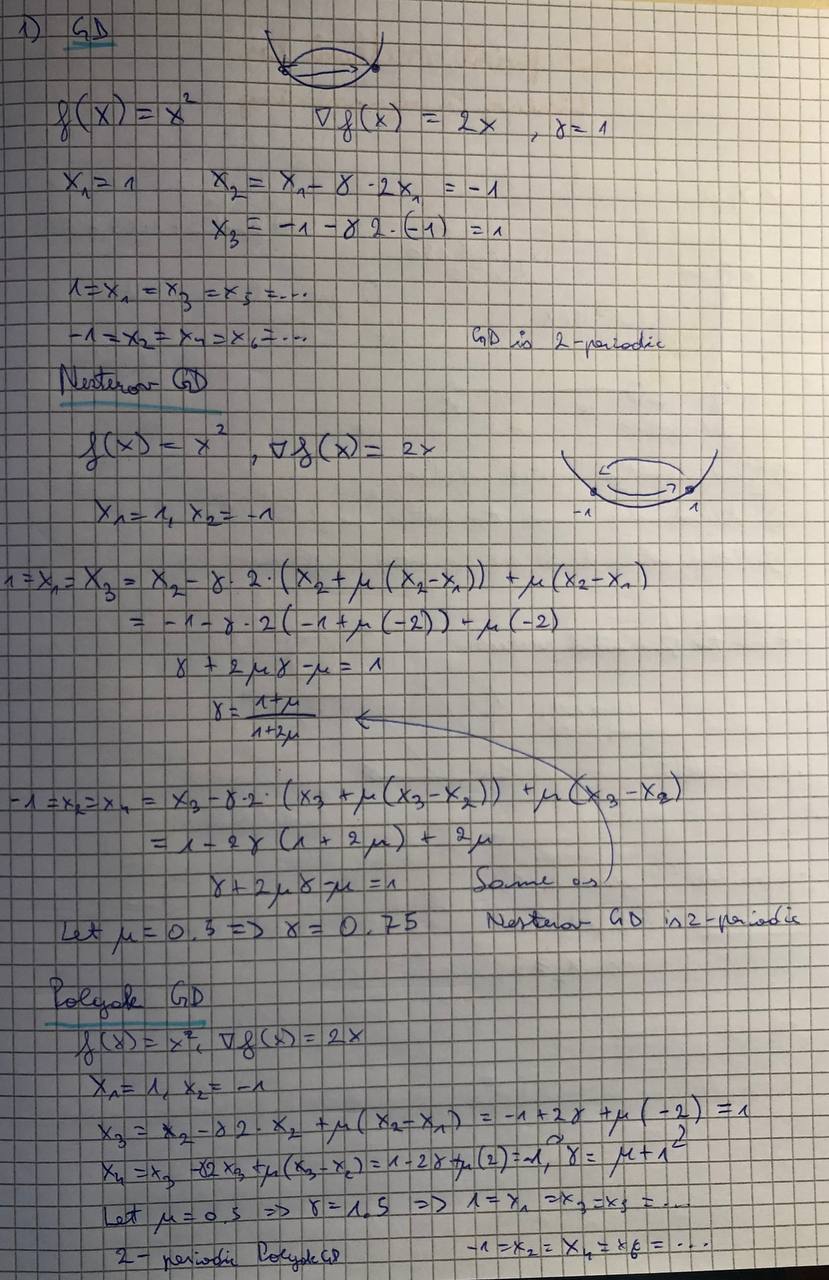 1) GD
f(x) = x² ∇f(x) = 2x , γ = 1
x₁ = 1 x₂ = x₁ - γ · 2x₁ = -1
x₃ = -1 - γ 2 · (-1) = 1
1 = x₁ = x₃ = x₅ = ...
-1 = x₂ = x₄ = x₆ = ... GD is 2-periodic
Nesterov GD
f(x) = x² , ∇f(x) = 2x
-1 1
x₁ = 1, x₂ = -1
1 = x₁ = x₃ = x₂ - γ · 2 · (x₂ + μ (x₂ - x₁)) + μ (x₂ - x₁)
= -1 - γ · 2 (-1 + μ (-2)) + μ (-2)
γ + 2μγ - μ = 1
γ = (1+μ)/(1+2μ)
-1 = x₂ = x₄ = x₃ - γ · 2 · (x₃ + μ (x₃ - x₂)) + μ (x₃ - x₂)
= 1 - 2γ (1 + 2μ) + 2μ
γ + 2μγ - μ = 1 Same as
Let μ = 0.5 => γ = 0.75 Nesterov GD is 2-periodic
Polyak GD
f(x) = x², ∇f(x) = 2x
x₁ = 1, x₂ = -1
x₃ = x₂ - γ 2 · x₂ + μ (x₂ - x₁) = -1 + 2γ + μ (-2) = 1
x₄ = x₃ - γ2x₃ + μ(x₃ - x₂) = 1 - 2γ + μ(2) = -1, γ = μ + 1
Let μ = 0.5 => γ = 1.5 => 1 = x₁ = x₃ = x₅ = ...
2 - periodic Polyak GD -1 = x₂ = x₄ = x₆ = ...